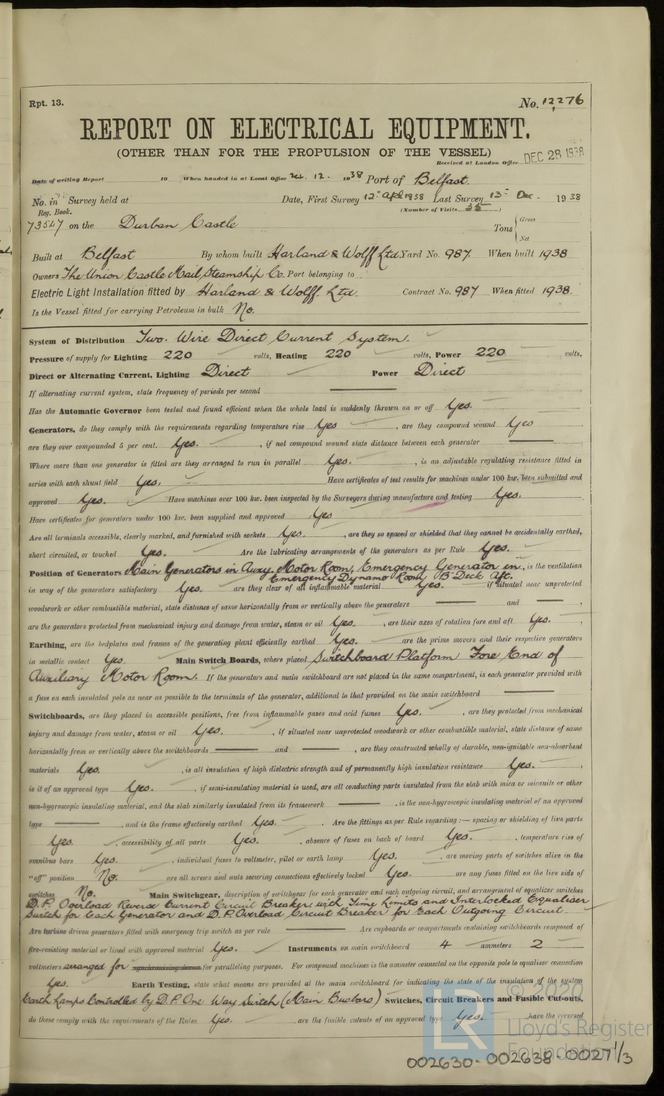 Rpt. 13. No. 12276
REPORT ON ELECTRICAL EQUIPMENT.
(OTHER THAN FOR THE PROPULSION OF THE VESSEL)
Received at London Office DEC 28 1938
Date of writing Report 19 When handed in at Local Office Dec. 12. 1938 Port of Belfast.
No. in Survey held at Date, First Survey 12th Apl 1938 Last Survey 13th Dec. 1938
Reg. Book. (Number of Visits 35)
73547 on the Durban Castle Tons Gross
Net
Built at Belfast By whom built Harland & Wolff Ltd. Yard No. 987. When built 1938
Owners The Union Castle Mail Steamship Co. Port belonging to
Electric Light Installation fitted by Harland & Wolff. Ltd. Contract No. 987 When fitted 1938.
Is the Vessel fitted for carrying Petroleum in bulk No.
System of Distribution Two. Wire Direct Current System.
Pressure of supply for Lighting 220 volts, Heating 220 volts, Power 220 volts,
Direct or Alternating Current, Lighting Direct Power Direct
If alternating current system, state frequency of periods per second
Has the Automatic Governor been tested and found efficient when the whole load is suddenly thrown on or off Yes.
Generators, do they comply with the requirements regarding temperature rise Yes , are they compound wound Yes
are they over compounded 5 per cent. Yes. , if not compound wound state distance between each generator
Where more than one generator is fitted are they arranged to run in parallel Yes. , is an adjustable regulating resistance fitted in
series with each shunt field Yes. Have certificates of test results for machines under 100 kw. been submitted and
approved Yes. Have machines over 100 kw. been inspected by the Surveyors during manufacture and testing Yes.
Have certificates for generators under 100 kw. been supplied and approved Yes
Are all terminals accessible, clearly marked, and furnished with sockets Yes. , are they so spaced or shielded that they cannot be accidentally earthed,
short circuited, or touched Yes. Are the lubricating arrangements of the generators as per Rule Yes.
Position of Generators Main Generators in Auxy. Motor Room, Emergency Generator in, is the ventilation
Emergency Dynamo Room B Deck Aft.
in way of the generators satisfactory Yes. are they clear of all inflammable material Yes. if situated near unprotected
woodwork or other combustible material, state distance of same horizontally from or vertically above the generators and ,
are the generators protected from mechanical injury and damage from water, steam or oil Yes. , are their axes of rotation fore and aft Yes.
Earthing, are the bedplates and frames of the generating plant efficiently earthed Yes. are the prime movers and their respective generators
in metallic contact Yes. Main Switch Boards, where placed Switchboard Platform Fore End of
Auxiliary Motor Room. If the generators and main switchboard are not placed in the same compartment, is each generator provided with
a fuse on each insulated pole as near as possible to the terminals of the generator, additional to that provided on the main switchboard
Switchboards, are they placed in accessible positions, free from inflammable gases and acid fumes Yes. , are they protected from mechanical
injury and damage from water, steam or oil Yes. , if situated near unprotected woodwork or other combustible material, state distance of same
horizontally from or vertically above the switchboards and , are they constructed wholly of durable, non-ignitable non-absorbent
materials Yes. , is all insulation of high dielectric strength and of permanently high insulation resistance Yes. ,
is it of an approved type Yes. , if semi-insulating material is used, are all conducting parts insulated from the slab with mica or micanite or other
non-hygroscopic insulating material, and the slab similarly insulated from its framework , is the non-hygroscopic insulating material of an approved
type , and is the frame effectively earthed Yes. Are the fittings as per Rule regarding :— spacing or shielding of live parts
Yes. , accessibility of all parts Yes. , absence of fuses on back of board Yes. , temperature rise of
omnibus bars Yes. , individual fuses to voltmeter, pilot or earth lamp Yes. , are moving parts of switches alive in the
"off" position No. are all screws and nuts securing connections effectively locked Yes. are any fuses fitted on the live side of
switches No. Main Switchgear, description of switchgear for each generator and each outgoing circuit, and arrangement of equalizer switches
D.P. Overload Reverse Current Circuit Breaker with Time Limits and Interlocked Equaliser
Switch for Each Generator and D.P. Overload Circuit Breaker for Each Outgoing Circuit.
Are turbine driven generators fitted with emergency trip switch as per rule Are cupboards or compartments containing switchboards composed of
fire-resisting material or lined with approved material Yes. Instruments on main switchboard 4 ammeters 2
voltmeters arranged for synchronising device for paralleling purposes. For compound machines is the ammeter connected on the opposite pole to equaliser connection
Yes. Earth Testing, state what means are provided at the main switchboard for indicating the state of the insulation of the system
Earth Lamps Controlled by D.P. One Way Switch (Main Busbars) Switches, Circuit Breakers and Fusible Cut-outs,
do these comply with the requirements of the Rules Yes. , are the fusible cutouts of an approved type Yes. , have the reversed
© 2020
Lloyd's Register
Foundation
002630-002638-0027 1/3